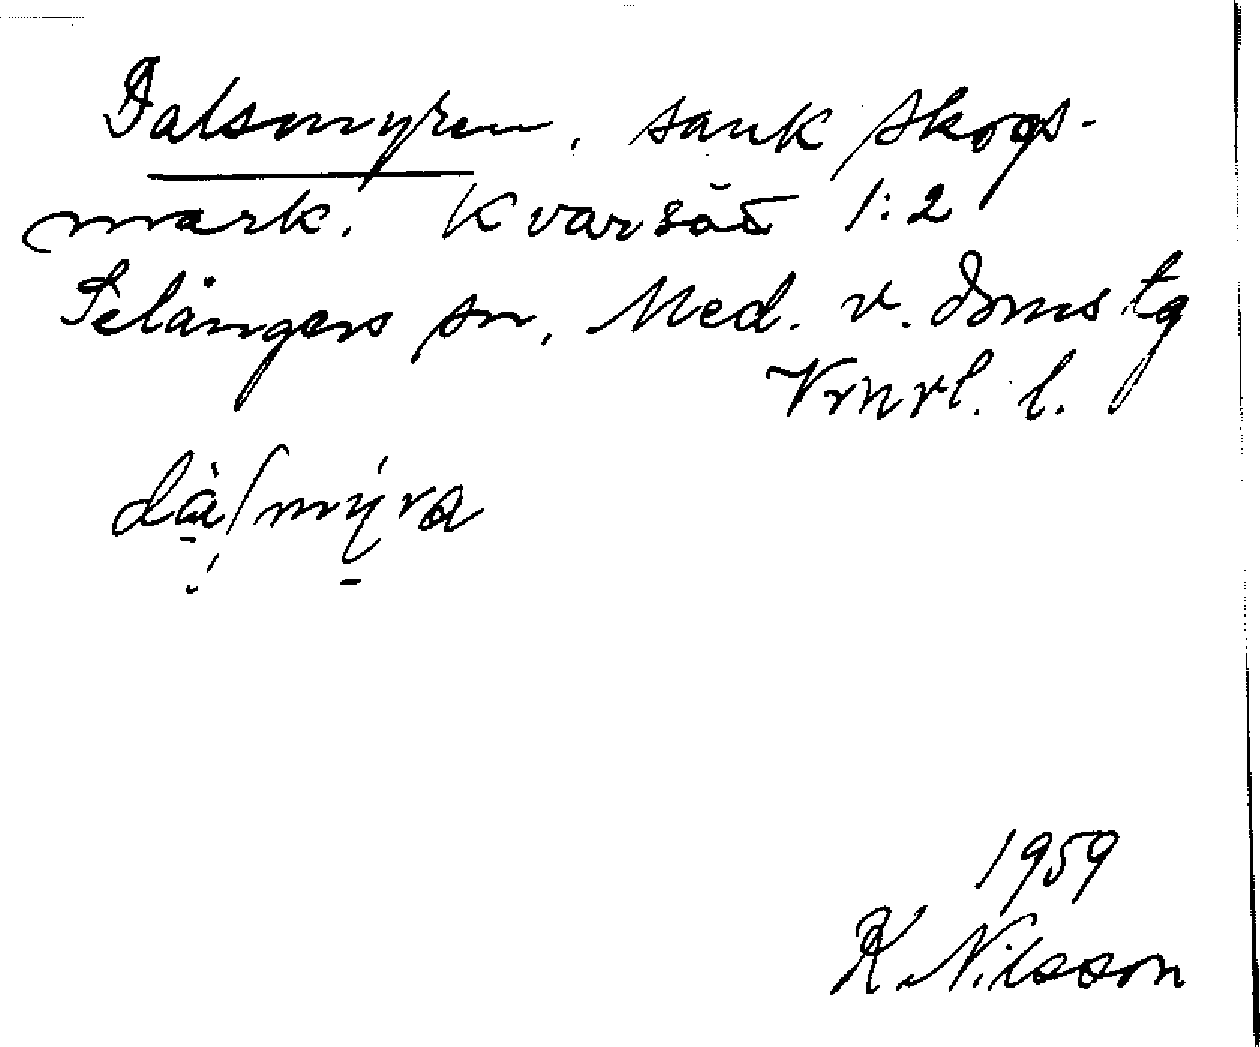 Dalsmyren, sank skogs-
mark. Kvarsätt 1:2
Selångers sn, Med. v. doms tg
Vrnrl. l.
dà/mýra
1959
K. Nilsson